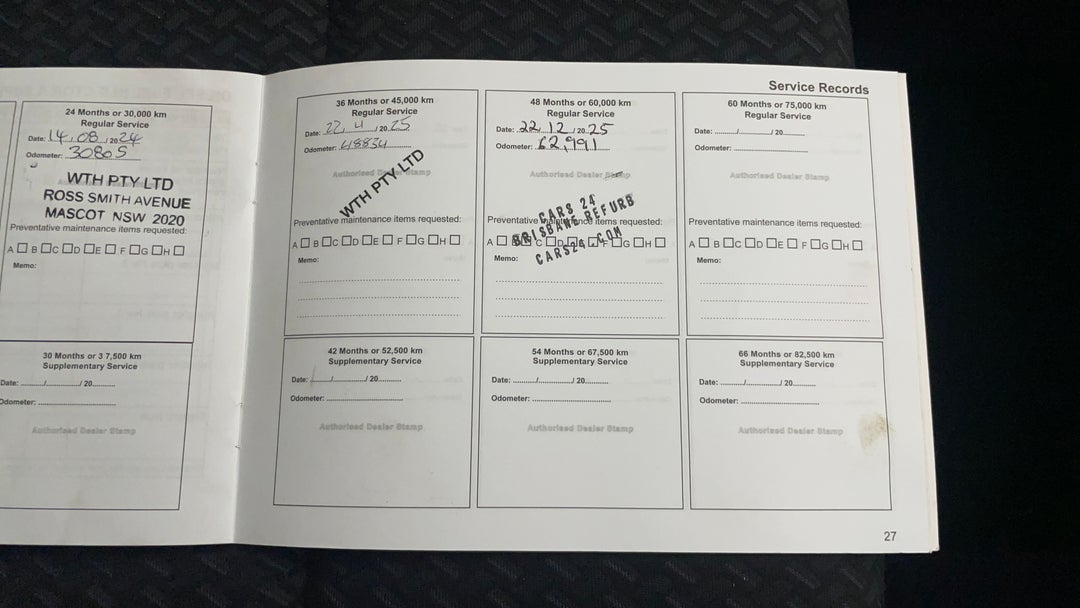 Service Records
24 Months or 30,000 km
Regular Service
Date: 14 / 08 / 2024
Odometer: 30805
WTH PTY LTD
ROSS SMITH AVENUE
MASCOT NSW 2020
Preventative maintenance items requested:
A B C D E F G H
Memo:
30 Months or 3 7,500 km
Supplementary Service
Date: ........./........./ 20.........
Odometer: ..............................
Authorised Dealer Stamp
36 Months or 45,000 km
Regular Service
Date: 22 / 4 / 20 25
Odometer: 48834
Authorised Dealer Stamp
WTH PTY LTD
Preventative maintenance items requested:
A B C D E F G H
Memo:
42 Months or 52,500 km
Supplementary Service
Date: ........./........./ 20.........
Odometer: ..............................
Authorised Dealer Stamp
48 Months or 60,000 km
Regular Service
Date: 22 / 12 / 20 25
Odometer: 62,991
Authorised Dealer Stamp
CARS 24
BRISBANE REFURB
CARS24.COM
Preventative maintenance items requested:
A B C D E F G H
Memo:
54 Months or 67,500 km
Supplementary Service
Date: ........./........./ 20.........
Odometer: ..............................
Authorised Dealer Stamp
60 Months or 75,000 km
Regular Service
Date: ........./........./ 20.........
Odometer: ..............................
Authorised Dealer Stamp
Preventative maintenance items requested:
A B C D E F G H
Memo:
66 Months or 82,500 km
Supplementary Service
Date: ........./........./ 20.........
Odometer: ..............................
Authorised Dealer Stamp
27